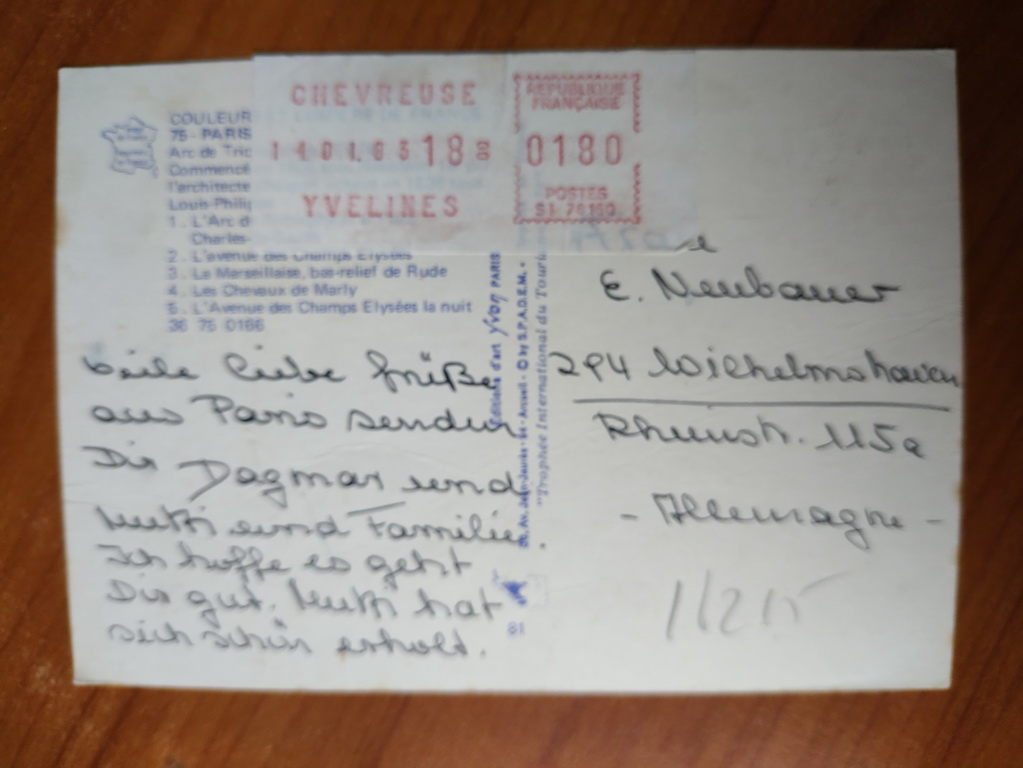 CHEVREUSE
14 01.83 18 00
YVELINES
REPUBLIQUE
FRANÇAISE
0180
POSTES
COULEUR
75 - PARIS
Arc de Tric
Commencé
l'architecte
Louis-Philip
1. L'Arc d
Charles-
2. L'avenue des Champs Elysées
3. La Marseillaise, bas-relief de Rude
4. Les Chevaux de Marly
5. L'Avenue des Champs Elysées la nuit
36 75 0166
Viele liebe Grüße
aus Paris senden
Dir Dagmar und
Mutti und Familie.
Ich hoffe es geht
Dir gut. Mutti hat
sich schön erholt.
Editions d'art Yvon PARIS
Av. Jean-Jaurès - Arcueil - © by S.P.A.D.E.M. -
"Trophée International du Touri
81
E. Neubauer
294 Wilhelmshaven
Rheinstr. 115a
- Allemagne -